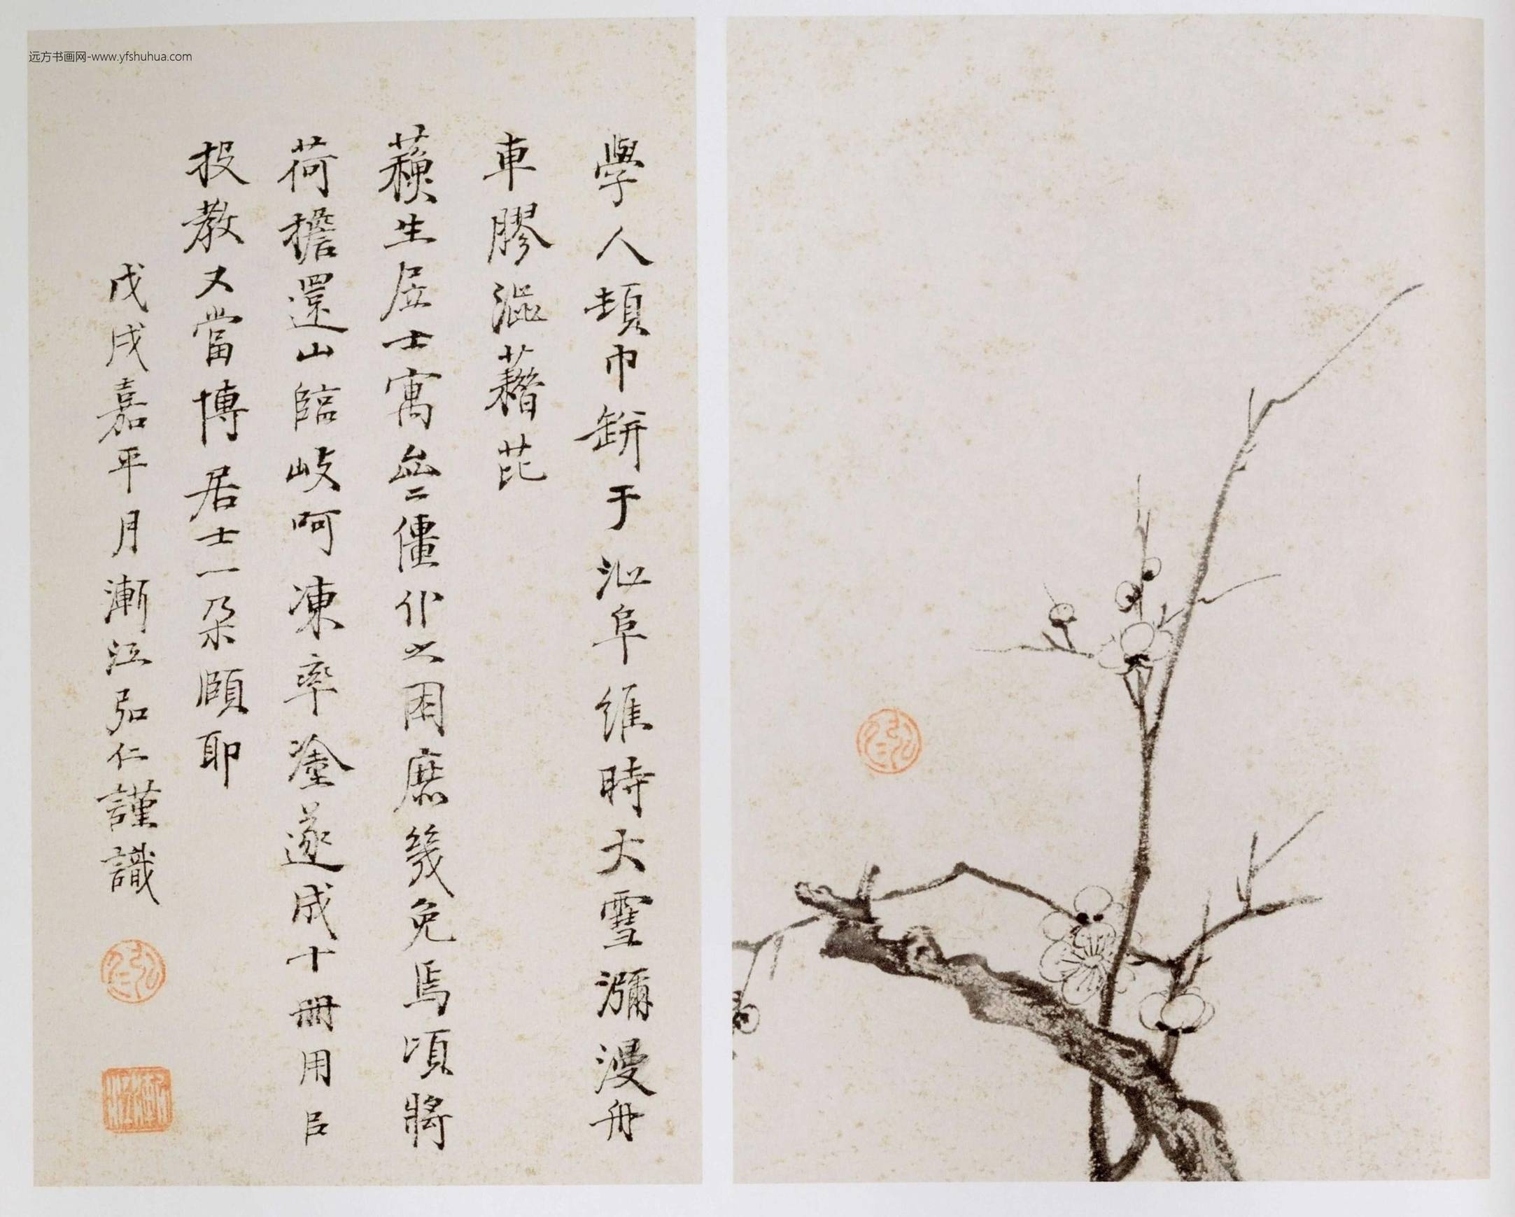 远方书画网-www.yfshuhua.com
學人頓巾缾于沁阜維時大雪瀰漫舟
車膠澁藉芘
蘋生居士寓無二僵仆之困庶幾免焉頃將
荷擔還山臨岐呵凍率塗遂成十冊用㠯
投教又當博居士一朵頤耶
戊戌嘉平月漸江弘仁謹識
弘仁
漸江
弘仁